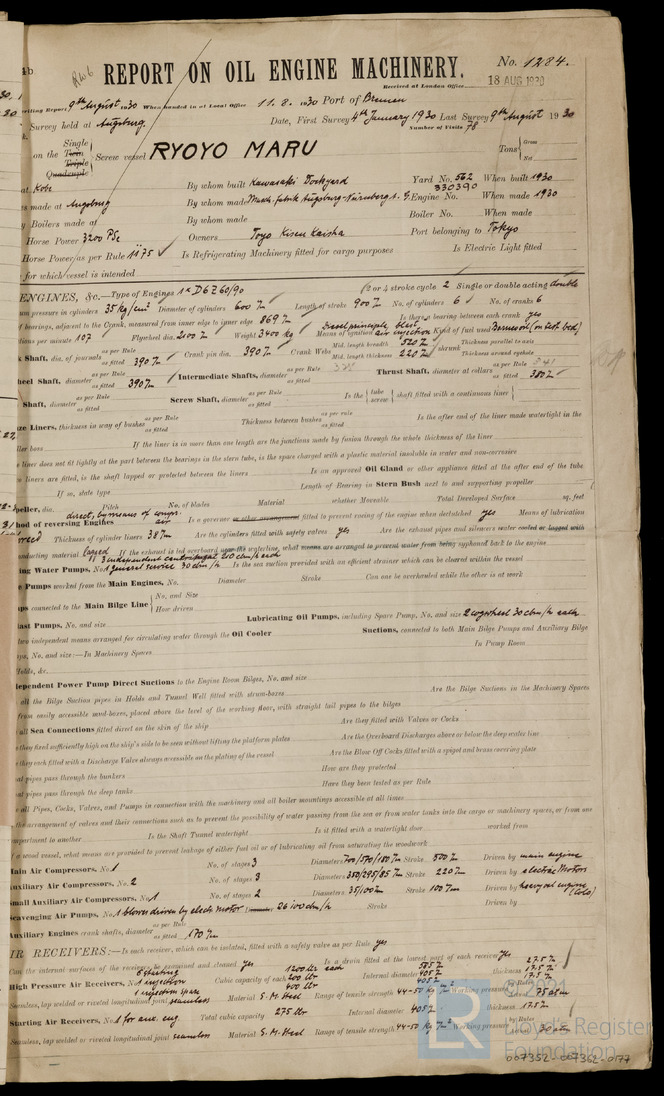 4b
Rw6
REPORT ON OIL ENGINE MACHINERY.
No. 1284.
Received at London Office 18 AUG 1930
Writing Report 9th August 1930 When handed in at Local Office 11.8.1930 Port of Bremen
Survey held at Augsburg. Date, First Survey 4th January 1930 Last Survey 9th August 1930
Number of Visits 78
on the Single Twin Triple Quadruple Screw vessel RYOYO MARU Tons Gross Net
at Kobe By whom built Kawasaki Dockyard Yard No. 562 When built 1930
s made at Augsburg By whom made Masch. fabrik Augsburg-Nürnberg A.G. Engine No. 330390 When made 1930
Boilers made at By whom made Boiler No. When made
Horse Power 3200 PSe Owners Toyo Kisen Kaisha Port belonging to Tokyo
Horse Power as per Rule 1175 Is Refrigerating Machinery fitted for cargo purposes Is Electric Light fitted
for which vessel is intended
ENGINES, &c.—Type of Engines 1x D6Z60/90 2 or 4 stroke cycle 2 Single or double acting double
pressure in cylinders 35 kg/cm² Diameter of cylinders 600 Length of stroke 900 No. of cylinders 6 No. of cranks 6
bearings, adjacent to the Crank, measured from inner edge to inner edge 869 Is there a bearing between each crank yes
per minute 107 Flywheel dia. 2100 Weight 3400 kg Means of ignition Diesel principle, blast air injection Kind of fuel used
Shaft, dia. of journals as per Rule as fitted 390 Crank pin dia. 390 Crank Webs Mid. length breadth 520 Mid. length thickness 220 shrunk Thickness parallel to axis Thickness around eyehole
heel Shaft, diameter as per Rule as fitted 390 Intermediate Shafts, diameter as per Rule as fitted Thrust Shaft, diameter at collars as per Rule as fitted 380
Shaft, diameter as per Rule as fitted Screw Shaft, diameter as per Rule as fitted Is the tube screw shaft fitted with a continuous liner
ze Liners, thickness in way of bushes as per Rule as fitted Thickness between bushes as per rule as fitted Is the after end of the liner made watertight in the
ller boss If the liner is in more than one length are the junctions made by fusion through the whole thickness of the liner
liner does not fit tightly at the part between the bearings in the stern tube, is the space charged with a plastic material insoluble in water and non-corrosive
liners are fitted, is the shaft lapped or protected between the liners Is an approved Oil Gland or other appliance fitted at the after end of the tube
If so, state type Length of Bearing in Stern Bush next to and supporting propeller
peller, dia. Pitch No. of blades Material whether Moveable Total Developed Surface sq. feet
hod of reversing Engines direct, by means of compr. air Is a governor or other arrangement fitted to prevent racing of the engine when declutched yes Means of lubrication
forced Thickness of cylinder liners 38 Are the cylinders fitted with safety valves yes Are the exhaust pipes and silencers water cooled or lagged with
conducting material lagged If the exhaust is led overboard near the waterline, what means are arranged to prevent water from being syphoned back to the engine
ng Water Pumps, No. 3 independent centrifugal 210 cbm/h each 1 general service 30 cbm/h Is the sea suction provided with an efficient strainer which can be cleared within the vessel
e Pumps worked from the Main Engines, No. Diameter Stroke Can one be overhauled while the other is at work
ps connected to the Main Bilge Line No. and Size How driven
last Pumps, No. and size Lubricating Oil Pumps, including Spare Pump, No. and size 2 cogwheel 30 cbm/h each
two independent means arranged for circulating water through the Oil Cooler Suctions, connected to both Main Bilge Pumps and Auxiliary Bilge
ps, No. and size:—In Machinery Spaces In Pump Room
Holds, &c.
dependent Power Pump Direct Suctions to the Engine Room Bilges, No. and size
all the Bilge Suction pipes in Holds and Tunnel Well fitted with strum-boxes Are the Bilge Suctions in the Machinery Spaces
from easily accessible mud-boxes, placed above the level of the working floor, with straight tail pipes to the bilges
all Sea Connections fitted direct on the skin of the ship Are they fitted with Valves or Cocks
they fixed sufficiently high on the ship's side to be seen without lifting the platform plates Are the Overboard Discharges above or below the deep water line
they each fitted with a Discharge Valve always accessible on the plating of the vessel Are the Blow Off Cocks fitted with a spigot and brass covering plate
at pipes pass through the bunkers How are they protected
at pipes pass through the deep tanks Have they been tested as per Rule
all Pipes, Cocks, Valves, and Pumps in connection with the machinery and all boiler mountings accessible at all times
the arrangement of valves and their connections such as to prevent the possibility of water passing from the sea or from water tanks into the cargo or machinery spaces, or from one
mpartment to another Is the Shaft Tunnel watertight Is it fitted with a watertight door worked from
a wood vessel, what means are provided to prevent leakage of either fuel oil or of lubricating oil from saturating the woodwork
Main Air Compressors, No. 1 No. of stages 3 Diameters 700/570/180 Stroke 500 Driven by main engine
Auxiliary Air Compressors, No. 2 No. of stages 3 Diameters 350/295/85 Stroke 220 Driven by electric Motors
Small Auxiliary Air Compressors, No. 1 No. of stages 2 Diameters 35/100 Stroke 100 Driven by heavy oil engine
Scavenging Air Pumps, No. 1 blower driven by electr. motor Stroke Driven by
Auxiliary Engines crank shafts, diameter as per Rule as fitted 170
IR RECEIVERS:—Is each receiver, which can be isolated, fitted with a safety valve as per Rule yes
Can the internal surfaces of the receivers be examined and cleaned yes Is a drain fitted at the lowest part of each receiver yes
High Pressure Air Receivers, No. 6 starting 1 injection 1 injection spare Cubic capacity of each 1200 ltr each 200 ltr 400 ltr Internal diameter 585 405 405 thickness 27.5 17.5 17.5
Seamless, lap welded or riveted longitudinal joint seamless Material S.M. Steel Range of tensile strength 44-50 kg Working pressure by Rules 75 atm
Starting Air Receivers, No. 1 for aux. eng Total cubic capacity 275 ltr Internal diameter 405 thickness 17.5
Seamless, lap welded or riveted longitudinal joint seamless Material S.M. Steel Range of tensile strength 44-50 kg Working pressure by Rules 30 atm
LR
© 2021
Lloyd's Register
Foundation
007352-007362-0177